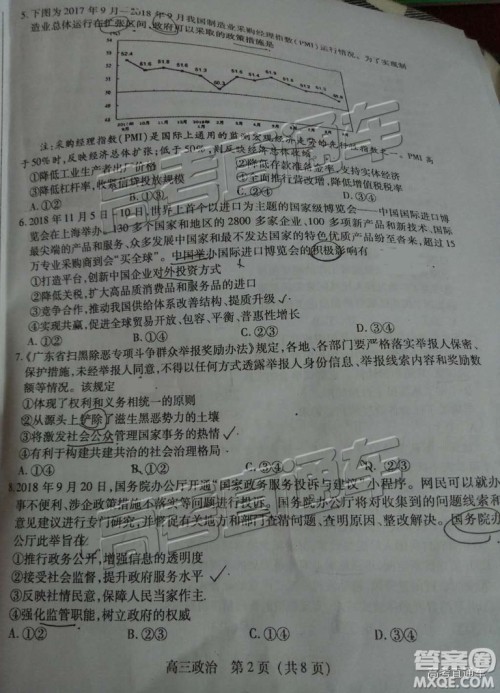 5.下图为2017年9月—2018年9月我国制造业采购经理指数(PMI)运行情况。为了实现制
造业总体运行在扩张区间,政府可以采取的政策措施是
52.4
50.3
注:采购经理指数(PMI)是国际上通用的监测宏观经济走势的先行性指数
PMI高
于50%时,反映经济总体扩张;低于50%,则反映经济总体衰
①降低工业生产者出厂价格
②降低存款准备金率,优化实体经济
③降低杠杆率,收紧信贷投放规模
④全面推行营改增,降低增值税税率
A.①③
B.①④
C.②③
D.②④
6.2018年11月5日—10日,世界上首个以进口为主题的国家级博览会——中国国际进口博
览会在上海举办。130多个国家和地区的2800多家企业、100多项新产品和新技术、国际
最尖端的产品和服务、众多发展中国家和最不发达国家的特色优质产品纷至沓来,超过15
万专业采购商到会“买全球”。中国举办国际进口博览会的积极影响有
①打造平台,创新中国企业对外投资方式
②降低关税,扩大高品质消费品和服务品的进口
③竞争合作,推动我国供给体系改善结构、提质升级
④实现共赢,促进全球贸易开放、包容、平衡、普惠性增长
A.①②
B.①④
C.②③
D.③④
7.《广东省扫黑除恶专项斗争群众举报奖励办法》规定,各地、各部门要严格落实举报人保密、
保护措施,未经举报人同意,不得以任何方式透露举报人身份信息、举报线索内容和奖励数
额等情况。该规定
①体现了权利和义务相统一的原则
②从源头上铲除了滋生黑恶势力的土壤
③将激发社会公众管理国家事务的热情
④有利于构建共建共治的社会治理格局
A.①④
B.①②
C.②③
D.③④
8.2018年9月20日,国务院办公厅开通“国家政务服务投诉与建议”小程序。网民可以就办
事不便利、涉企政策措施不落实等问题进行投诉。国务院办公厅将对收集到的问题线索和
意见建议进行专门研究,并要求有关地方和部门查清问题、查明原因、整改解决。国务院办
公厅此举旨在
①推行政务公开,增强信息的透明度
②接受社会监督,提升政府服务水平
③反映社情民意,保障人民当家作主
④强化监管职能,树立政府的权威
A.①②
B.①③
C.②④
D.③④
高三政治 第2页(共8页)
高考直通车
答案圈
MXQE.COM